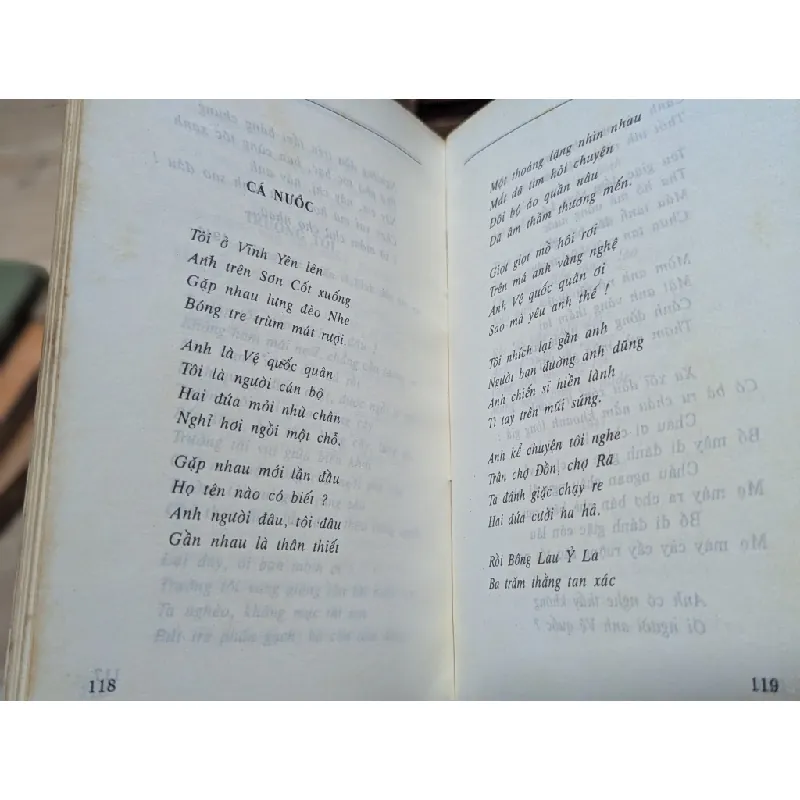 CÁ NƯỚC
Tôi ở Vĩnh Yên lên
Anh trên Sơn Cốt xuống
Gặp nhau lưng đèo Nhe
Bóng tre trùm mát rượi.
Anh là Vệ quốc quân
Tôi là người cán bộ
Hai đứa mỏi nhừ chân
Nghỉ hơi ngồi một chỗ.
Gặp nhau mới lần đầu
Họ tên nào có biết ?
Anh người đâu, tôi đâu
Gần nhau là thân thiết
118
Một thoáng lặng nhìn nhau
Mắt đã tìm hỏi chuyện
Đôi bộ áo quần nâu
Đã âm thầm thương mến.
Giọt giọt mồ hôi rơi
Trên má anh vàng nghệ
Anh Vệ quốc quân ơi
Sao mà yêu anh thế !
Tôi nhích lại gần anh
Người bạn đường anh dũng
Anh chiến sĩ hiền lành
Tì tay trên mũi súng.
Anh kể chuyện tôi nghe
Trận chợ Đồn, chợ Rã
Ta đánh giặc chạy re
Hai đứa cười ha hả.
Rồi Bông Lau Ỷ La
Ba trăm thằng tan xác
119